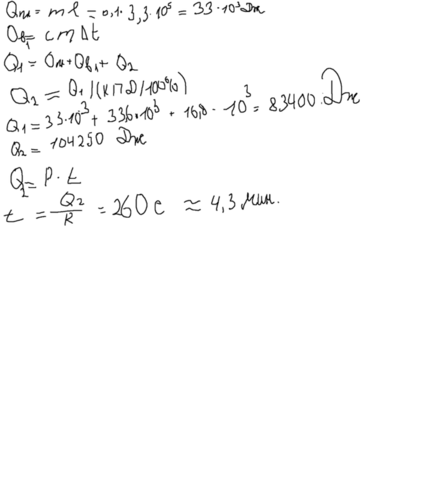 Qпл = mℓ = 0,1 · 3,3 · 10⁵ = 33 · 10³ Дж
Qв₁ = cmΔt
Q₁ = Qпл + Qв₁ + Q₂
Q₂ = Q₁/(КПД/100%)
Q₁ = 33·10³ + 33600·10³ + 16,8 · 10³ = 83400 Дж
Q₂ = 104250 Дж
Q₂ = P · t
t = Q₂/R = 260 c ≈ 4,3 мин.